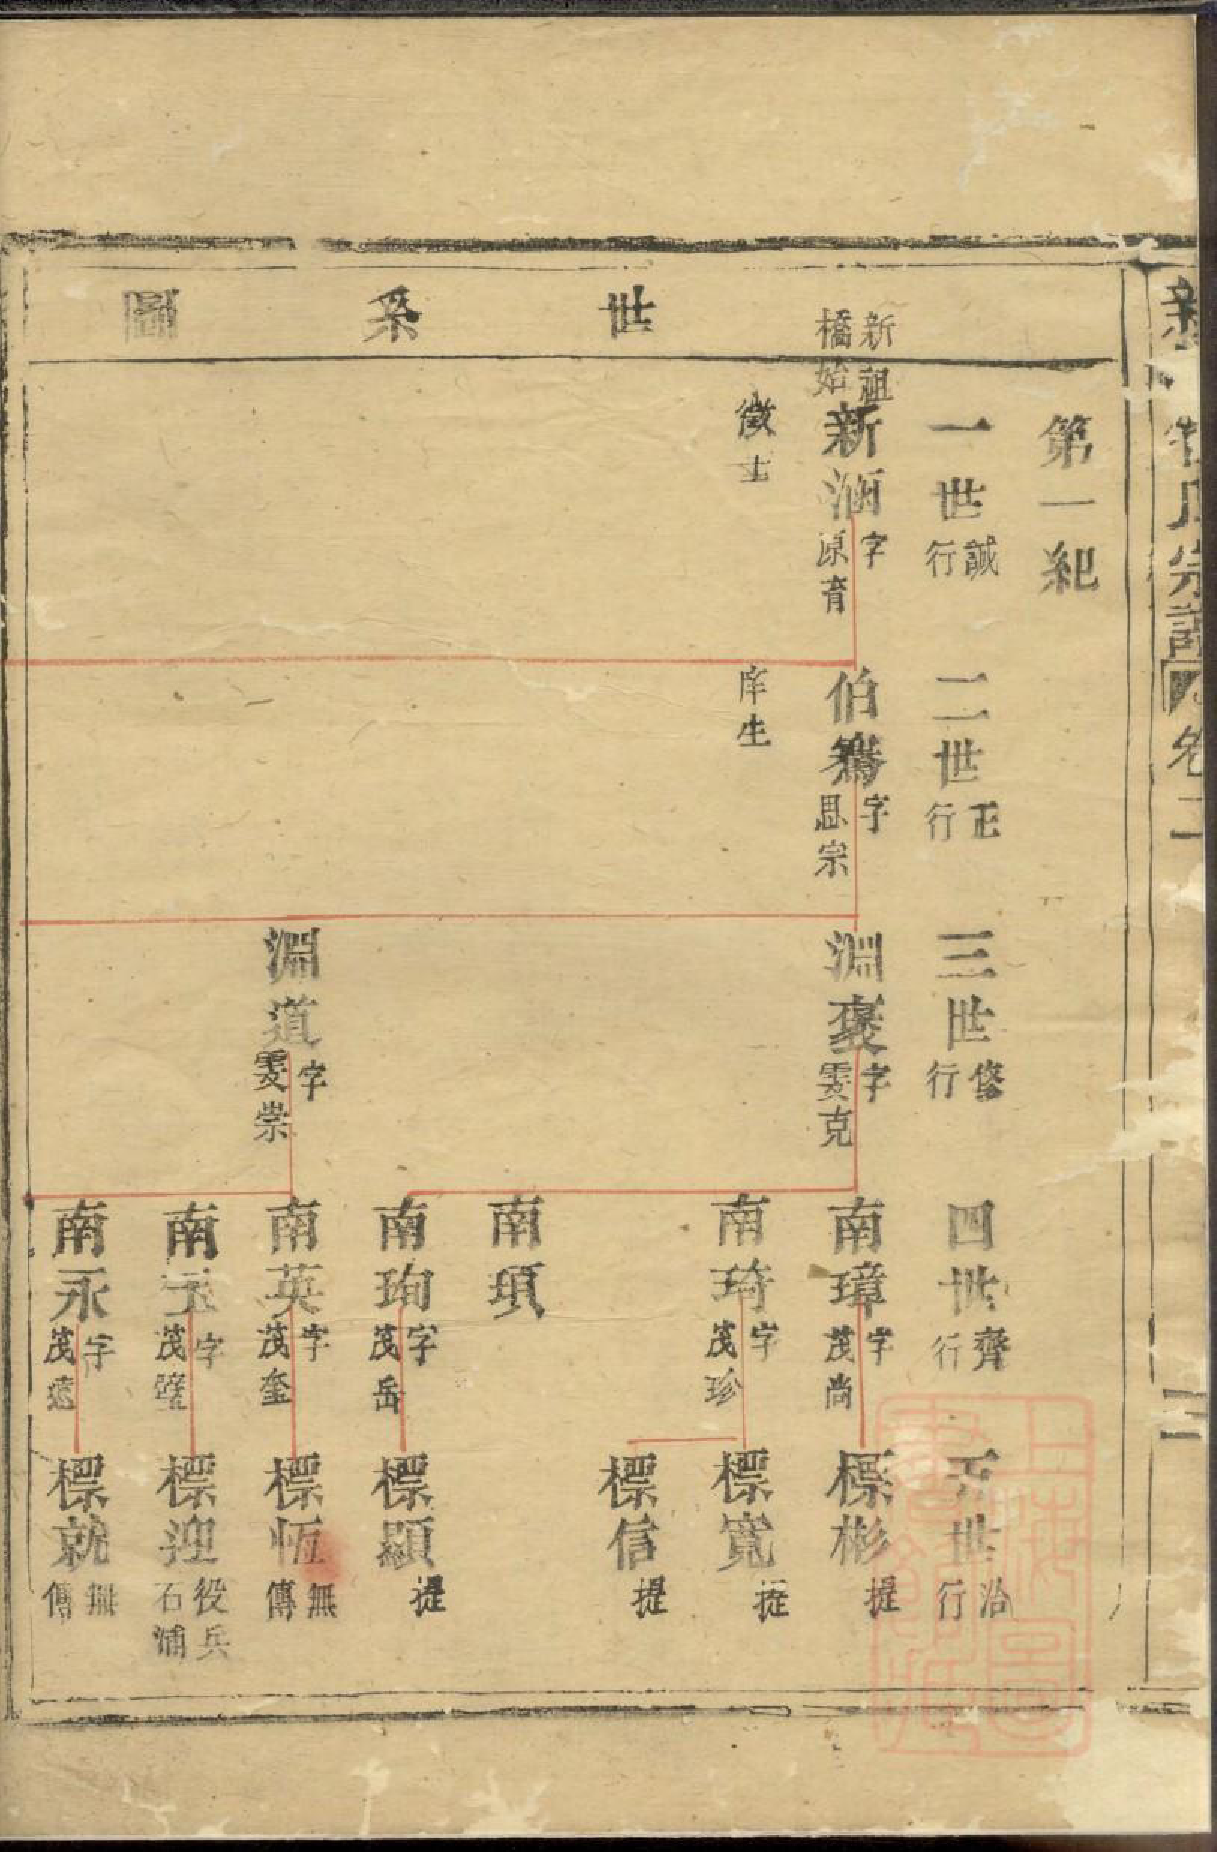 世系圖
第一紀
一世 誠行
二世 正行
三世 修行
四世 齊行
五世 治行
新橋始祖
新涵 字原育
徵士
伯鶱 字思宗
庠生
淵褒 字雯克
淵道 字雯崇
南璋 字茂尚
南琦 字茂珍
南項
南珣 字茂岳
南英 字茂奎
南玉 字茂
南永 字茂遠
標彬 提
標寬 提
標信 提
標顯 提
標恆 無傳
標迎 役兵石浦
標就 無傳
氏宗譜
卷二
上海圖書館藏